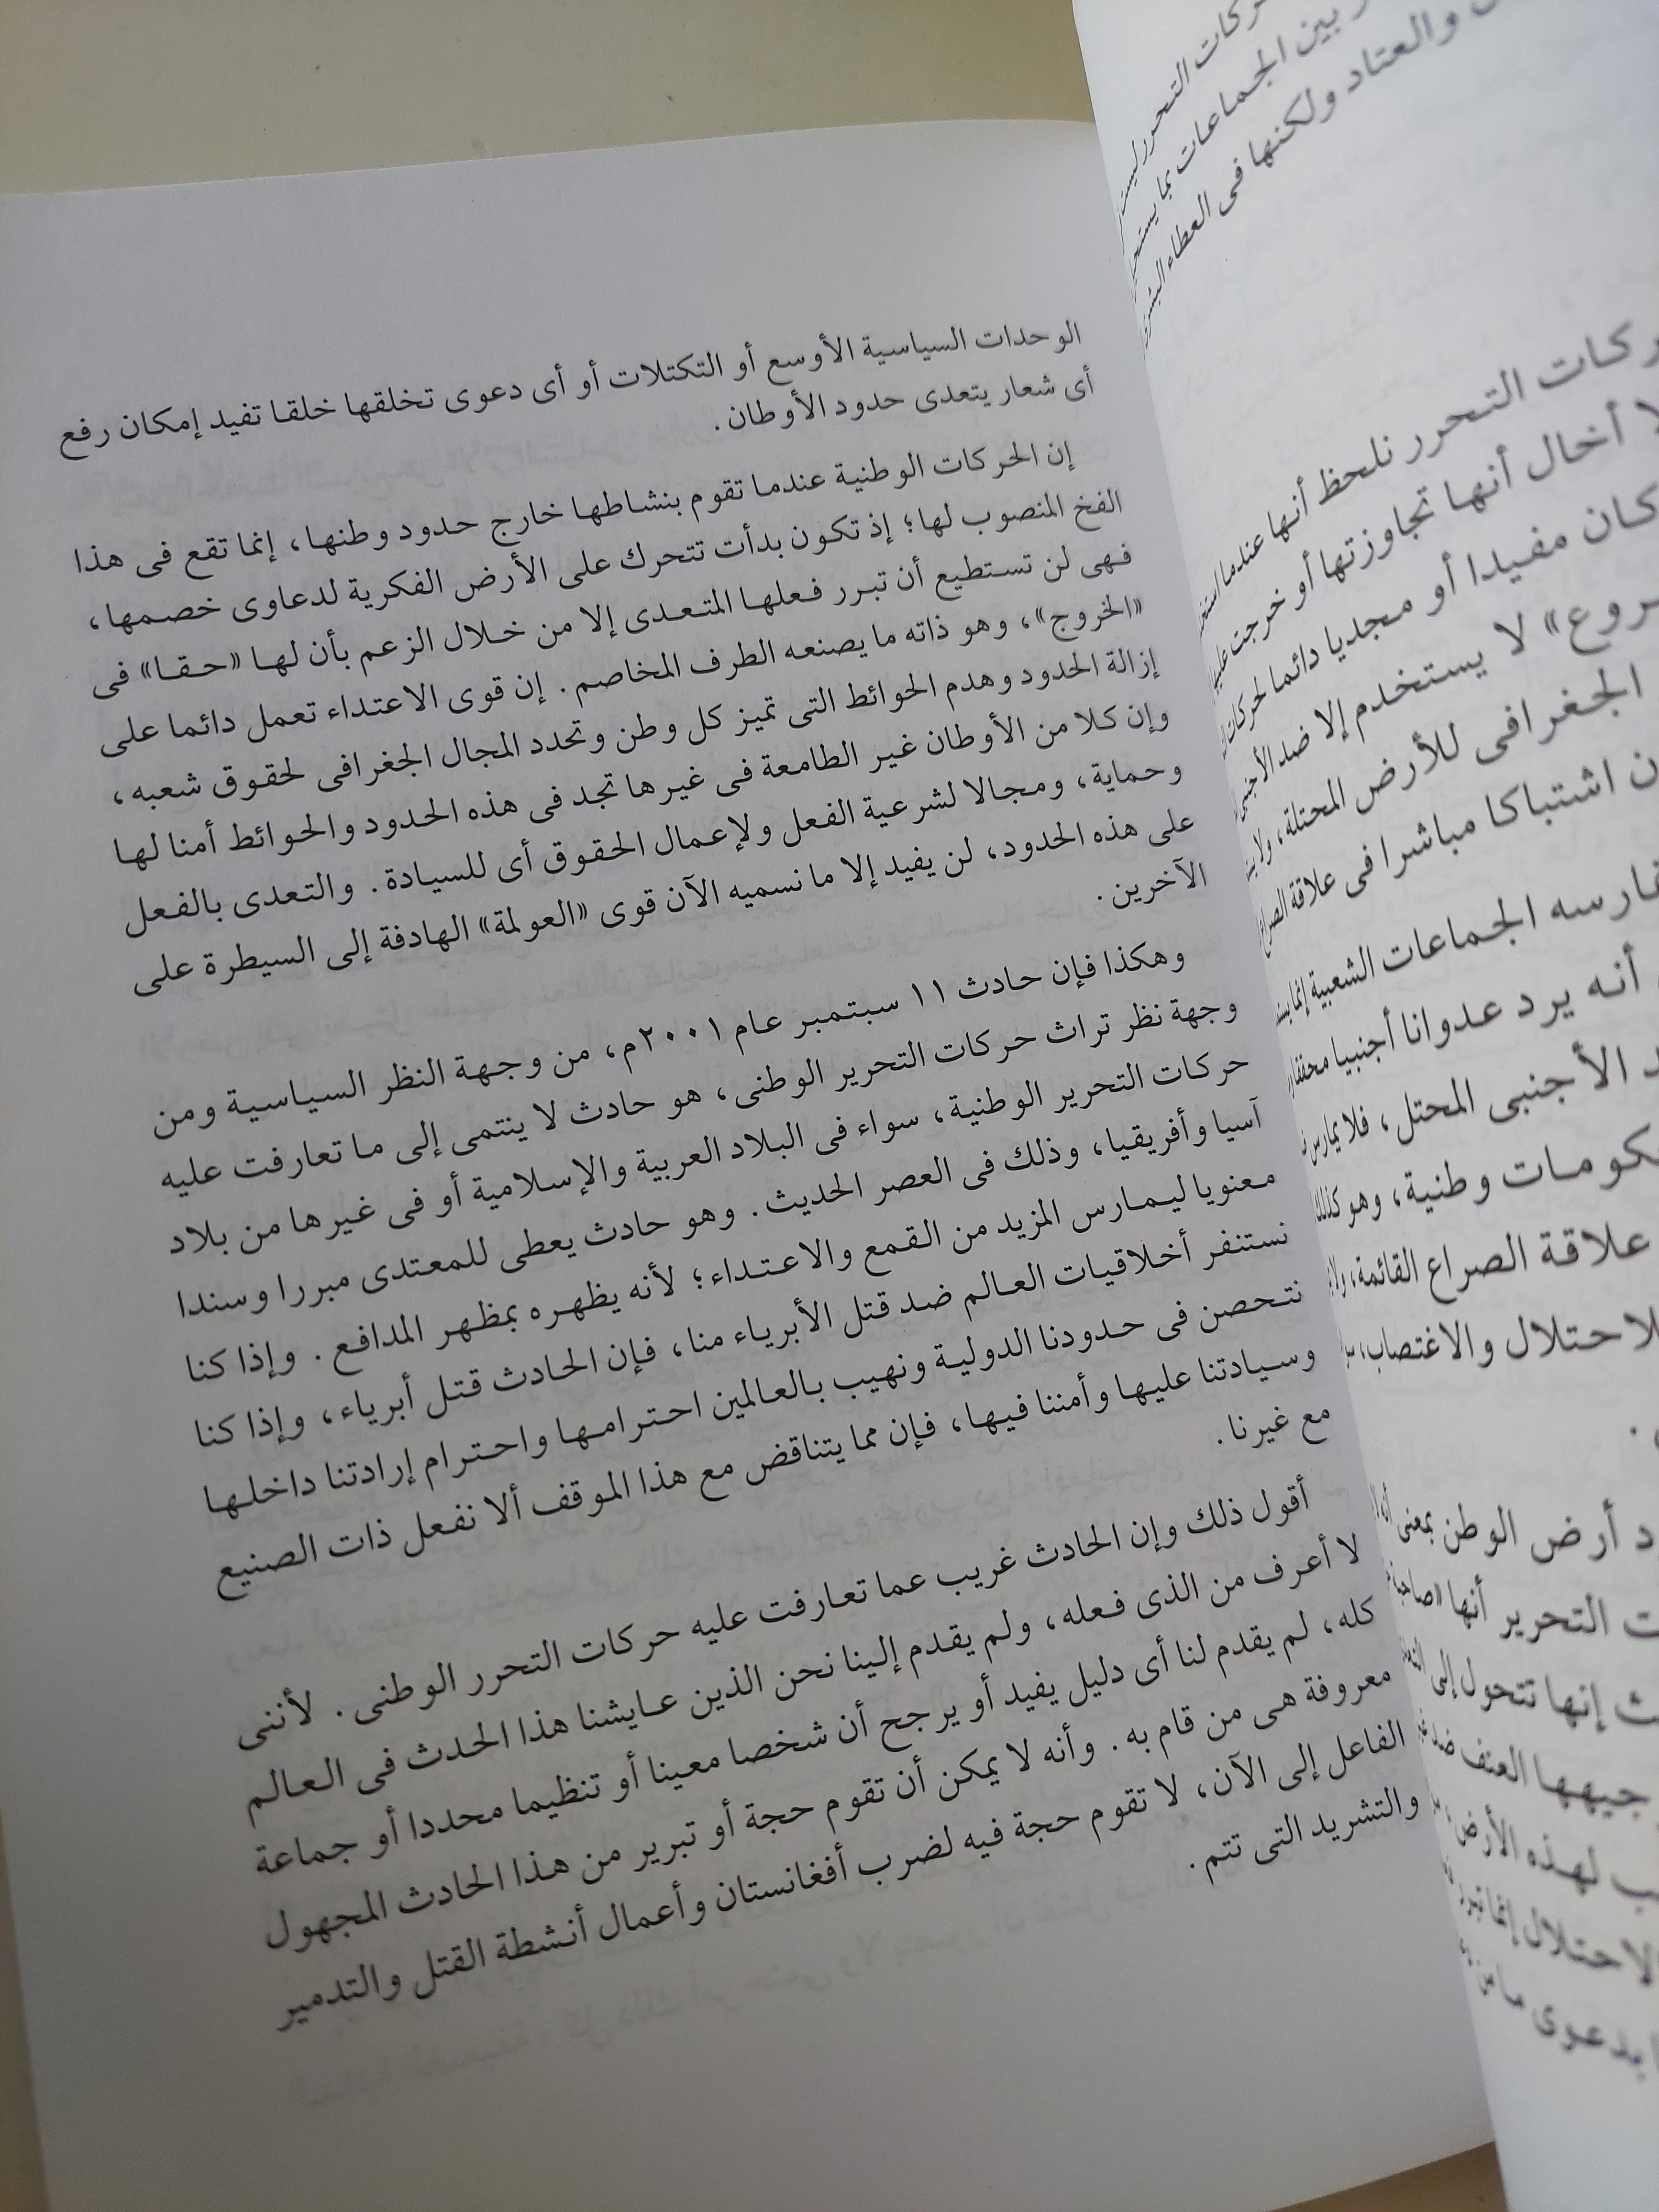 الوحدات السياسية الأوسع أو التكتلات أو أى دعوى تخلقها خلقا تفيد إمكان رفع
أى شعار يتعدى حدود الأوطان.
إن الحركات الوطنية عندما تقوم بنشاطها خارج حدود وطنها، إنما تقع فى هذا
الفخ المنصوب لها؛ إذ تكون بدأت تتحرك على الأرض الفكرية لدعاوى خصمها،
فهى لن تستطيع أن تبرر فعلها المتعدى إلا من خلال الزعم بأن لها «حقا» فى
«الخروج»، وهو ذاته ما يصنعه الطرف المخاصم. إن قوى الاعتداء تعمل دائما على
إزالة الحدود وهدم الحوائط التى تميز كل وطن وتحدد المجال الجغرافى لحقوق شعبه،
وإن كلا من الأوطان غير الطامعة فى غيرها تجد فى هذه الحدود والحوائط أمنا لها
وحماية، ومجالا لشرعية الفعل ولإعمال الحقوق أى للسيادة. والتعدى بالفعل
على هذه الحدود، لن يفيد إلا ما نسميه الآن قوى «العولمة» الهادفة إلى السيطرة على
الآخرين.
وهكذا فإن حادث ١١ سبتمبر عام ٢٠٠١م، من وجهة النظر السياسية ومن
وجهة نظر تراث حركات التحرير الوطنى، هو حادث لا ينتمى إلى ما تعارفت عليه
حركات التحرير الوطنية، سواء فى البلاد العربية والإسلامية أو فى غيرها من بلاد
آسيا وأفريقيا، وذلك فى العصر الحديث. وهو حادث يعطى للمعتدى مبررا وسندا
معنويا ليمارس المزيد من القمع والاعتداء؛ لأنه يظهره بمظهر المدافع. وإذا كنا
نستنفر أخلاقيات العالم ضد قتل الأبرياء منا، فإن الحادث قتل أبرياء، وإذا كنا
نتحصن فى حدودنا الدولية ونهيب بالعالمين احترامها واحترام إرادتنا داخلها
وسيادتنا عليها وأمننا فيها، فإن مما يتناقض مع هذا الموقف ألا نفعل ذات الصنيع
مع غيرنا.
أقول ذلك وإن الحادث غريب عما تعارفت عليه حركات التحرر الوطنى. لأننى
لا أعرف من الذى فعله، ولم يقدم إلينا نحن الذين عايشنا هذا الحدث فى العالم
كله، لم يقدم لنا أى دليل يفيد أو يرجح أن شخصا معينا أو تنظيما محددا أو جماعة
معروفة هى من قام به. وأنه لا يمكن أن تقوم حجة أو تبرير من هذا الحادث المجهول
الفاعل إلى الآن، لا تقوم حجة فيه لضرب أفغانستان وأعمال أنشطة القتل والتدمير
والتشريد التى تتم.
ركات التحرر ليست
بين الجماعات بما
والعتاد ولكنها فى العطاء البشرى
ركات التحرر نلحظ أنها عندما
لا أخال أنها تجاوزتها أو خرجت عليها
كان مفيدا أو مجديا دائما لحركات
روع» لا يستخدم إلا ضد الأجنبى
الجغرافى للأرض المحتلة، ولا
ن اشتباكا مباشرا فى علاقة الصراع
تمارسه الجماعات الشعبية إنما
أنه يرد عدوانا أجنبيا
د الأجنبى المحتل، فلا يمارس
كومات وطنية، وهو كذلك
علاقة الصراع القائمة،
لاحتلال والاغتصاب،
د أرض الوطن بمعنى
ت التحرير أنها
ث إنها تتحول إلى
جيهها العنف ضد
ب لهذه الأرض،
الاحتلال إنما تبرر
بدعوى ما من